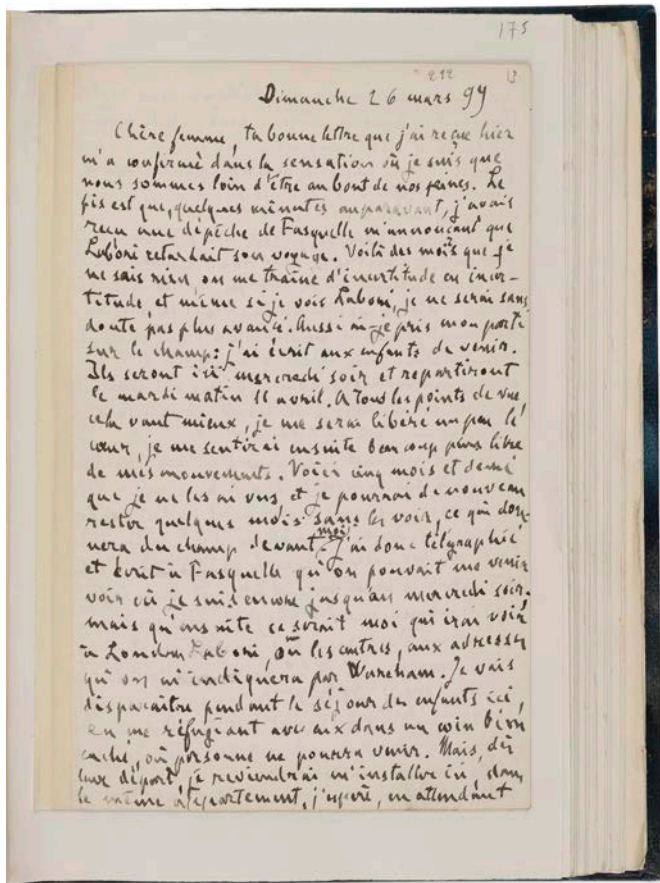 175
212
13
Dimanche 26 mars 99
Chère femme, ta bonne lettre que j'ai reçue hier
m'a confirmé dans la sensation où je suis que
nous sommes loin d'être au bout de nos peines. Le
pis est que, quelques minutes auparavant, j'avais
reçu une dépêche de Fasquelle m'annonçant que
Labori retardait son voyage. Voilà des mois que je
ne sais rien, on me traîne d'incertitude en incer-
titude et même si je vois Labori, je ne serai sans
doute pas plus avancé. Aussi ai-je pris mon parti
sur le champ: j'ai écrit aux enfants de venir.
Ils seront ici mercredi soir et repartiront
le mardi matin 11 avril. A tous les points de vue,
cela vaut mieux, je me serai libéré un peu le
cœur, je me sentirai ensuite beaucoup plus libre
de mes mouvements. Voici cinq mois et demi
que je ne les ai vus, et je pourrai de nouveau
rester quelques mois sans les voir, ce qui don-
nera du champ devant moi. J'ai donc télégraphié
et écrit à Fasquelle qu'on pouvait me venir
voir où je suis encore jusqu'au mercredi soir,
mais qu'ensuite ce serait moi qui irai voir
à London Labori, ou les autres, aux adresses
qu'on m'indiquera par Wareham. Je vais
disparaître pendant le séjour des enfants ici,
en me réfugiant avec eux dans un coin bien
caché, où personne ne pourra venir. Mais, dès
leur départ, je reviendrai m'installer ici, dans
le même appartement, j'espère, en attendant